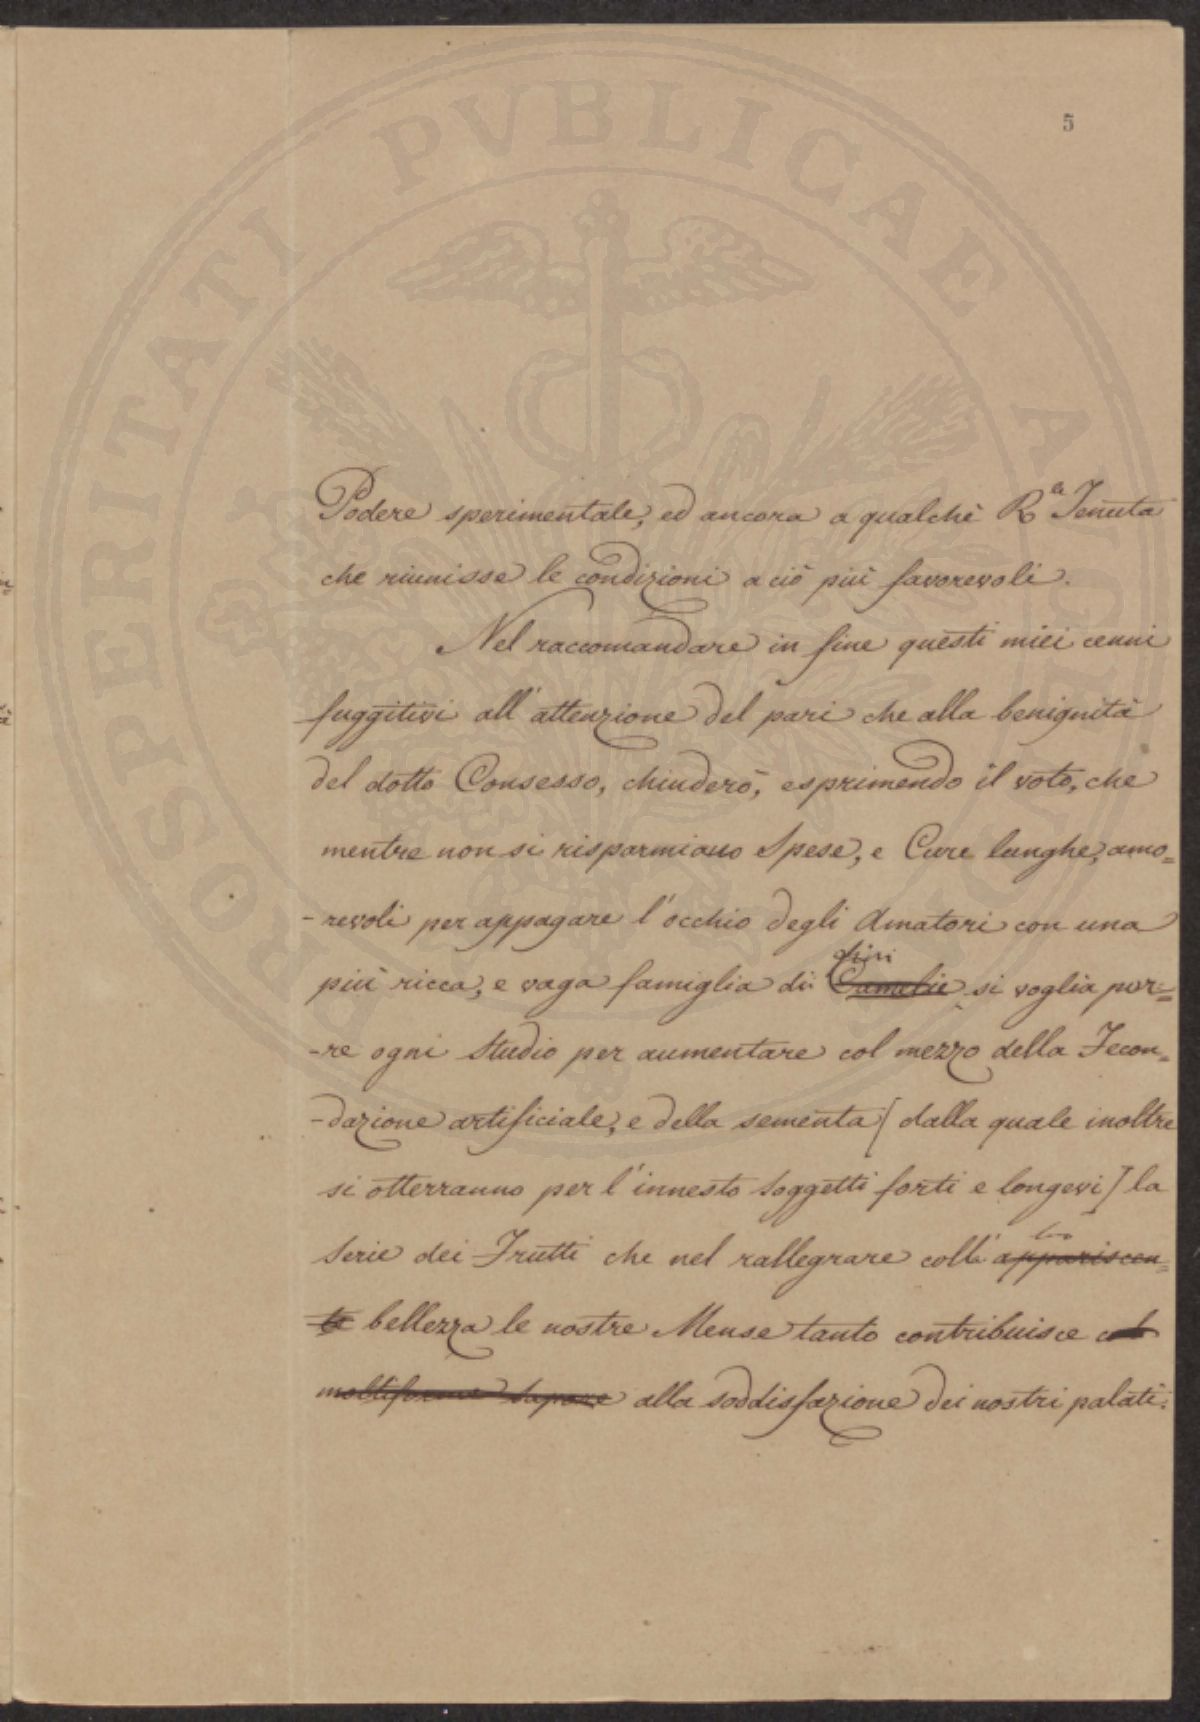 5
Podere sperimentale, ed ancora a qualche R.a Tenuta
che riunisse le condizioni a ciò più favorevoli.
Nel raccomandare in fine questi miei cenni
fuggitivi all'attenzione del pari che alla benignità
del dotto Consesso, chiuderò, esprimendo il voto, che
mentre non si risparmiano Spese, e Cure lunghe, amo=
-revoli per appagare l'occhio degli Amatori con una
più ricca, e vaga famiglia di Camelie si voglia por=
-re ogni Studio per aumentare col mezzo della Fecon=
-dazione artificiale, e della sementa [dalla quale inoltre
si otterranno per l'innesto Soggetti forti e longevi] la
Serie dei Frutti che nel rallegrare coll' appariscen=
-te bellezza le nostre Mense tanto contribuisce col
moltiforme Sapore alla soddisfazione dei nostri palati.
PROSPERITATI PVBLICAE